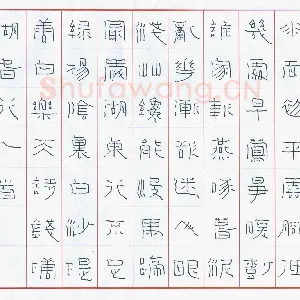 水面初平雲腳低
幾處早鶯爭暖樹
誰家新燕啄春泥
亂花漸欲迷人眼
淺草纔能沒馬蹄
最愛湖東行不足
綠楊陰裏白沙堤
唐白樂天詩錢塘
湖春行一首
Shufawang.CN